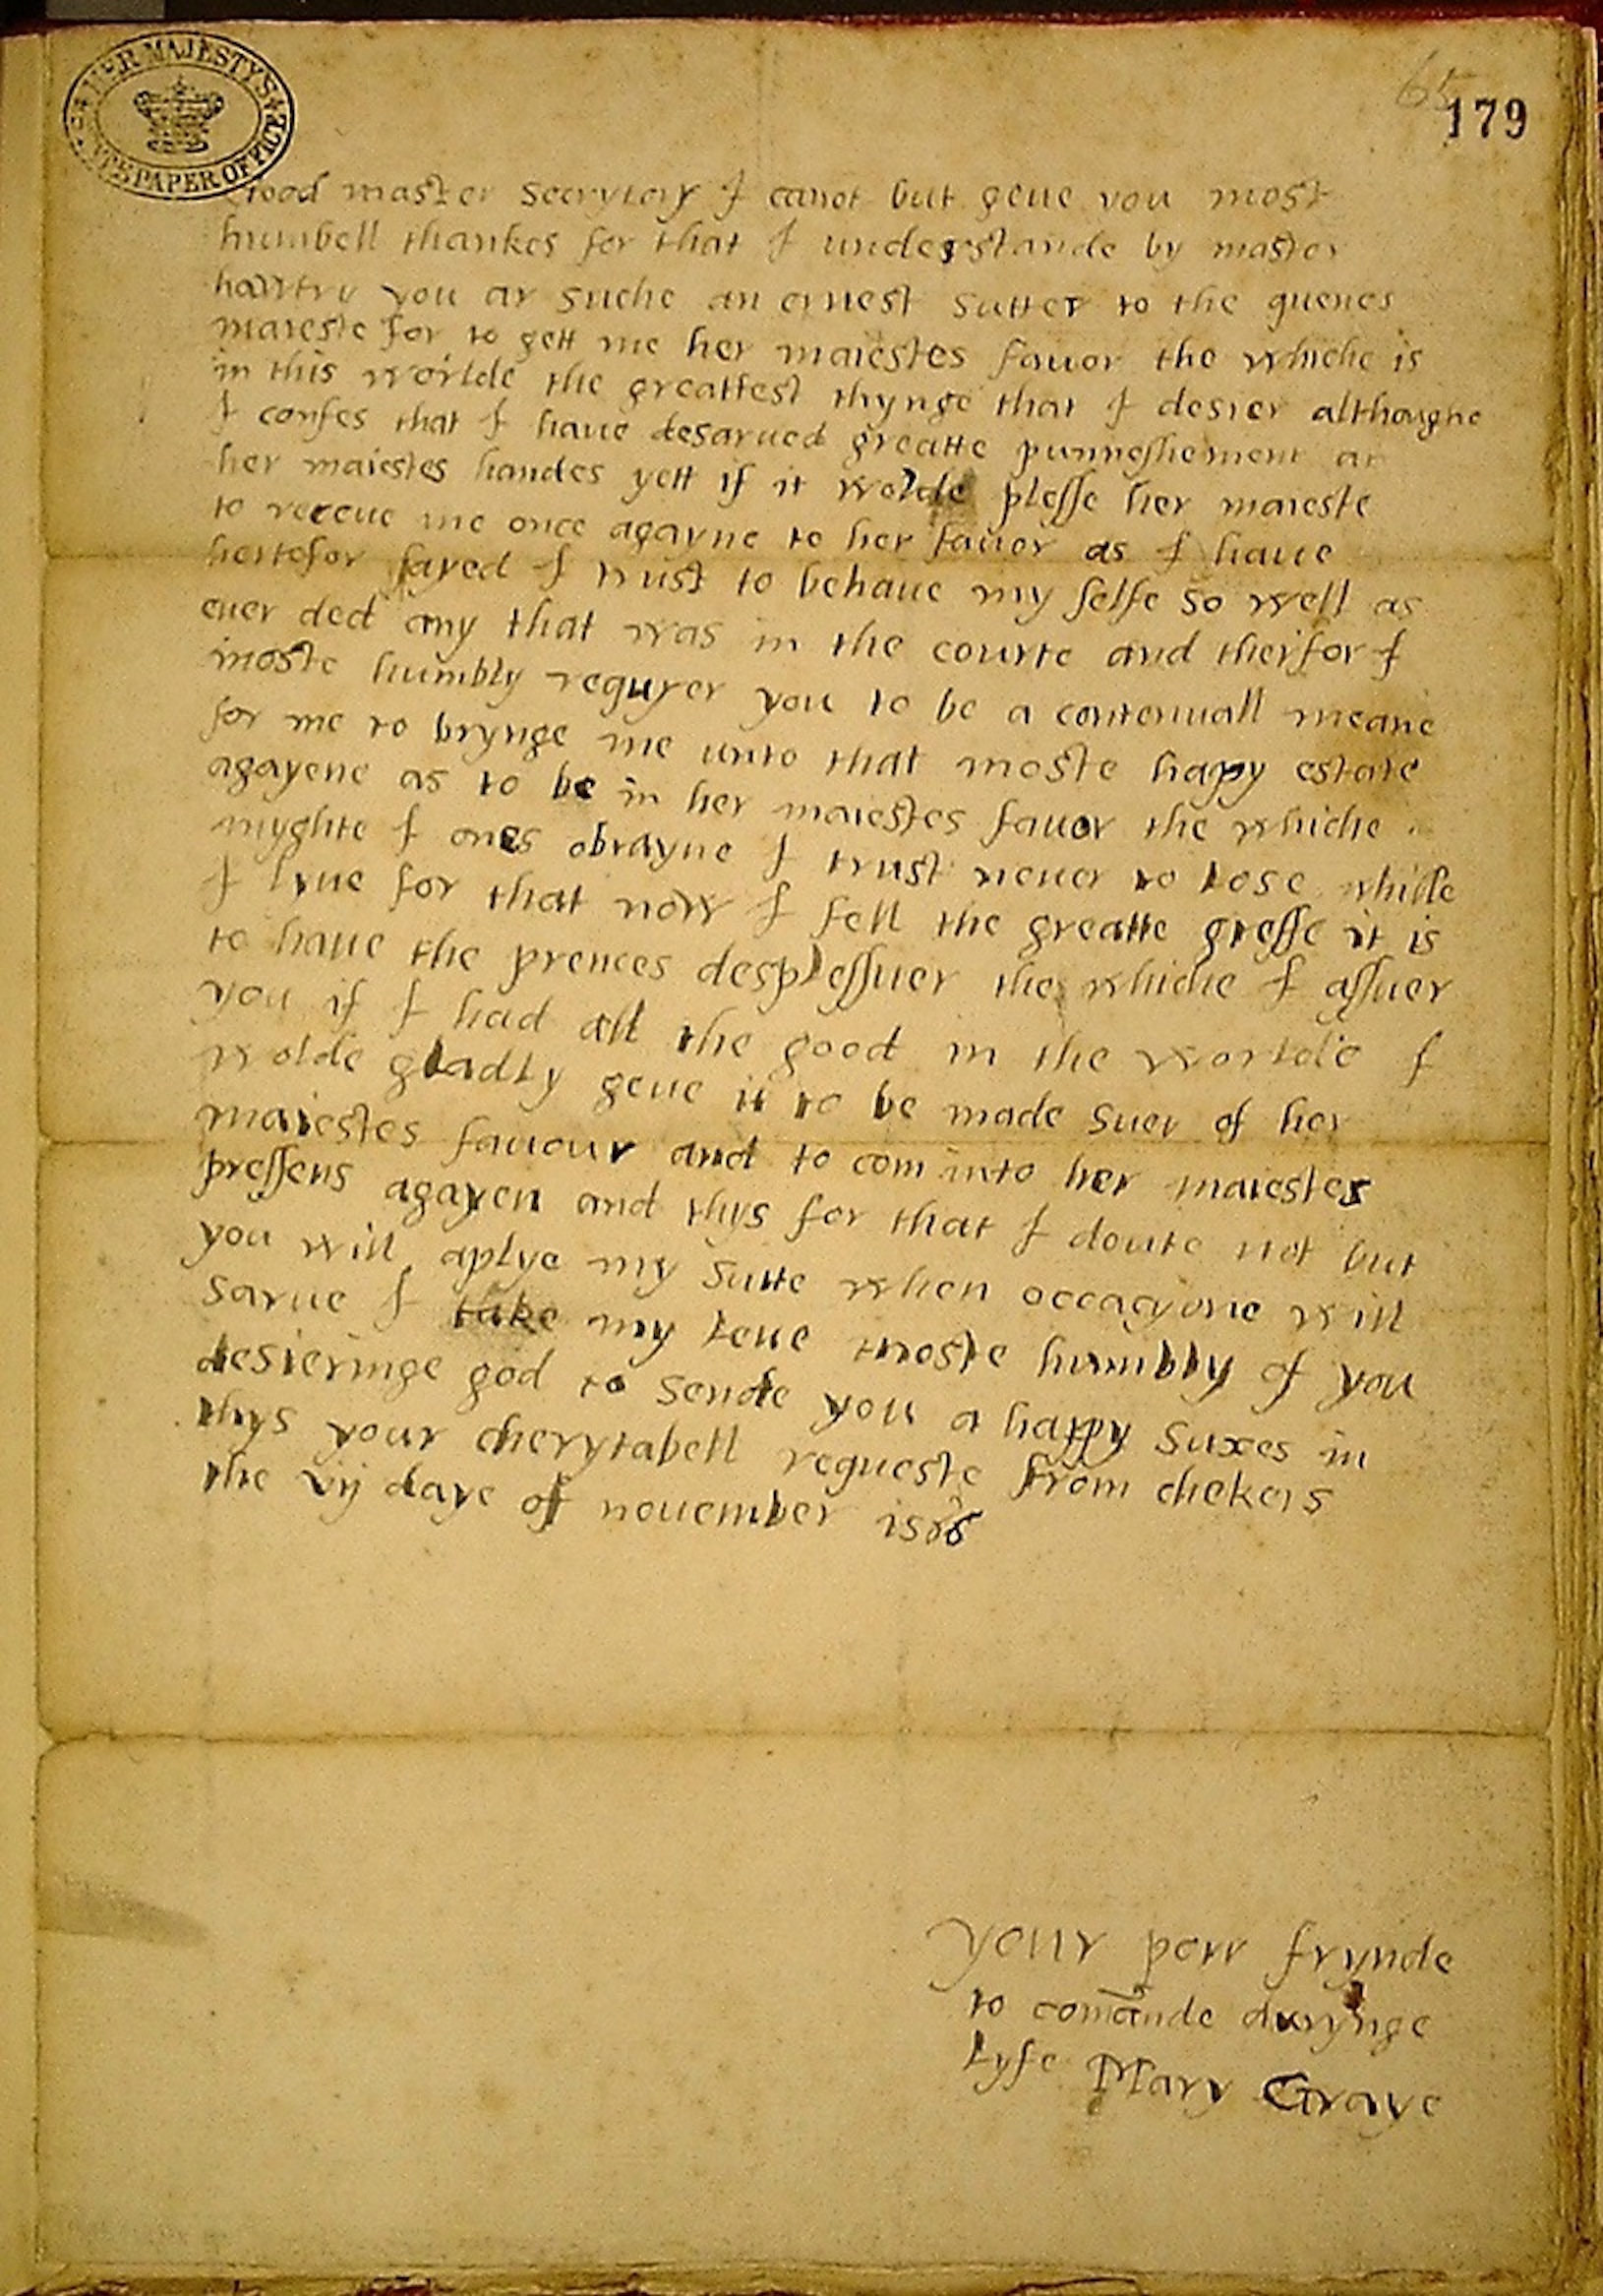 HER MAJESTY'S
STATE PAPER OFFICE
65
179
Good master secrytary I canot but geue you most
humbell thankes for that I understande by master
hawtry you ar suche an ernest sutter to the quenes
maieste for to gett me her maiestes fauor the whiche is
in this worlde the greattest thynge that I desier althoughe
I confes that I haue desarued greatte punneshement at
her maiestes handes yett if it wolde plesse her maieste
to receue me once agayne to her fauor as I haue
hertefor I trust to behaue my selfe so well as
euer ded any that was in the courte and therfor I
moste humbly requyer you to be a contenuall meane
for me to brynge me unto that moste hapy estate
agayene as to be in her maiestes fauor the whiche
myghte I ones obtayne I trust neuer to lose whille
I lyue for that now I fell the greatte greffe it is
to haue the prences desplessuer the whiche I assuer
you if I had all the good in the worlde I
wolde gladly geue it to be made suer of her
maiestes fauour and to com into her maiestes
pressens agayen and thys for that I doute not but
you will aplye my sutte when occacyone will
sarue I take my leue moste humbly of you
desieringe god to sende you a happy suxes in
thys your cherytabell requeste from chekers
the vij daye of nouember
your porr frynde
to comãnde durynge
lyfe Mary Graye